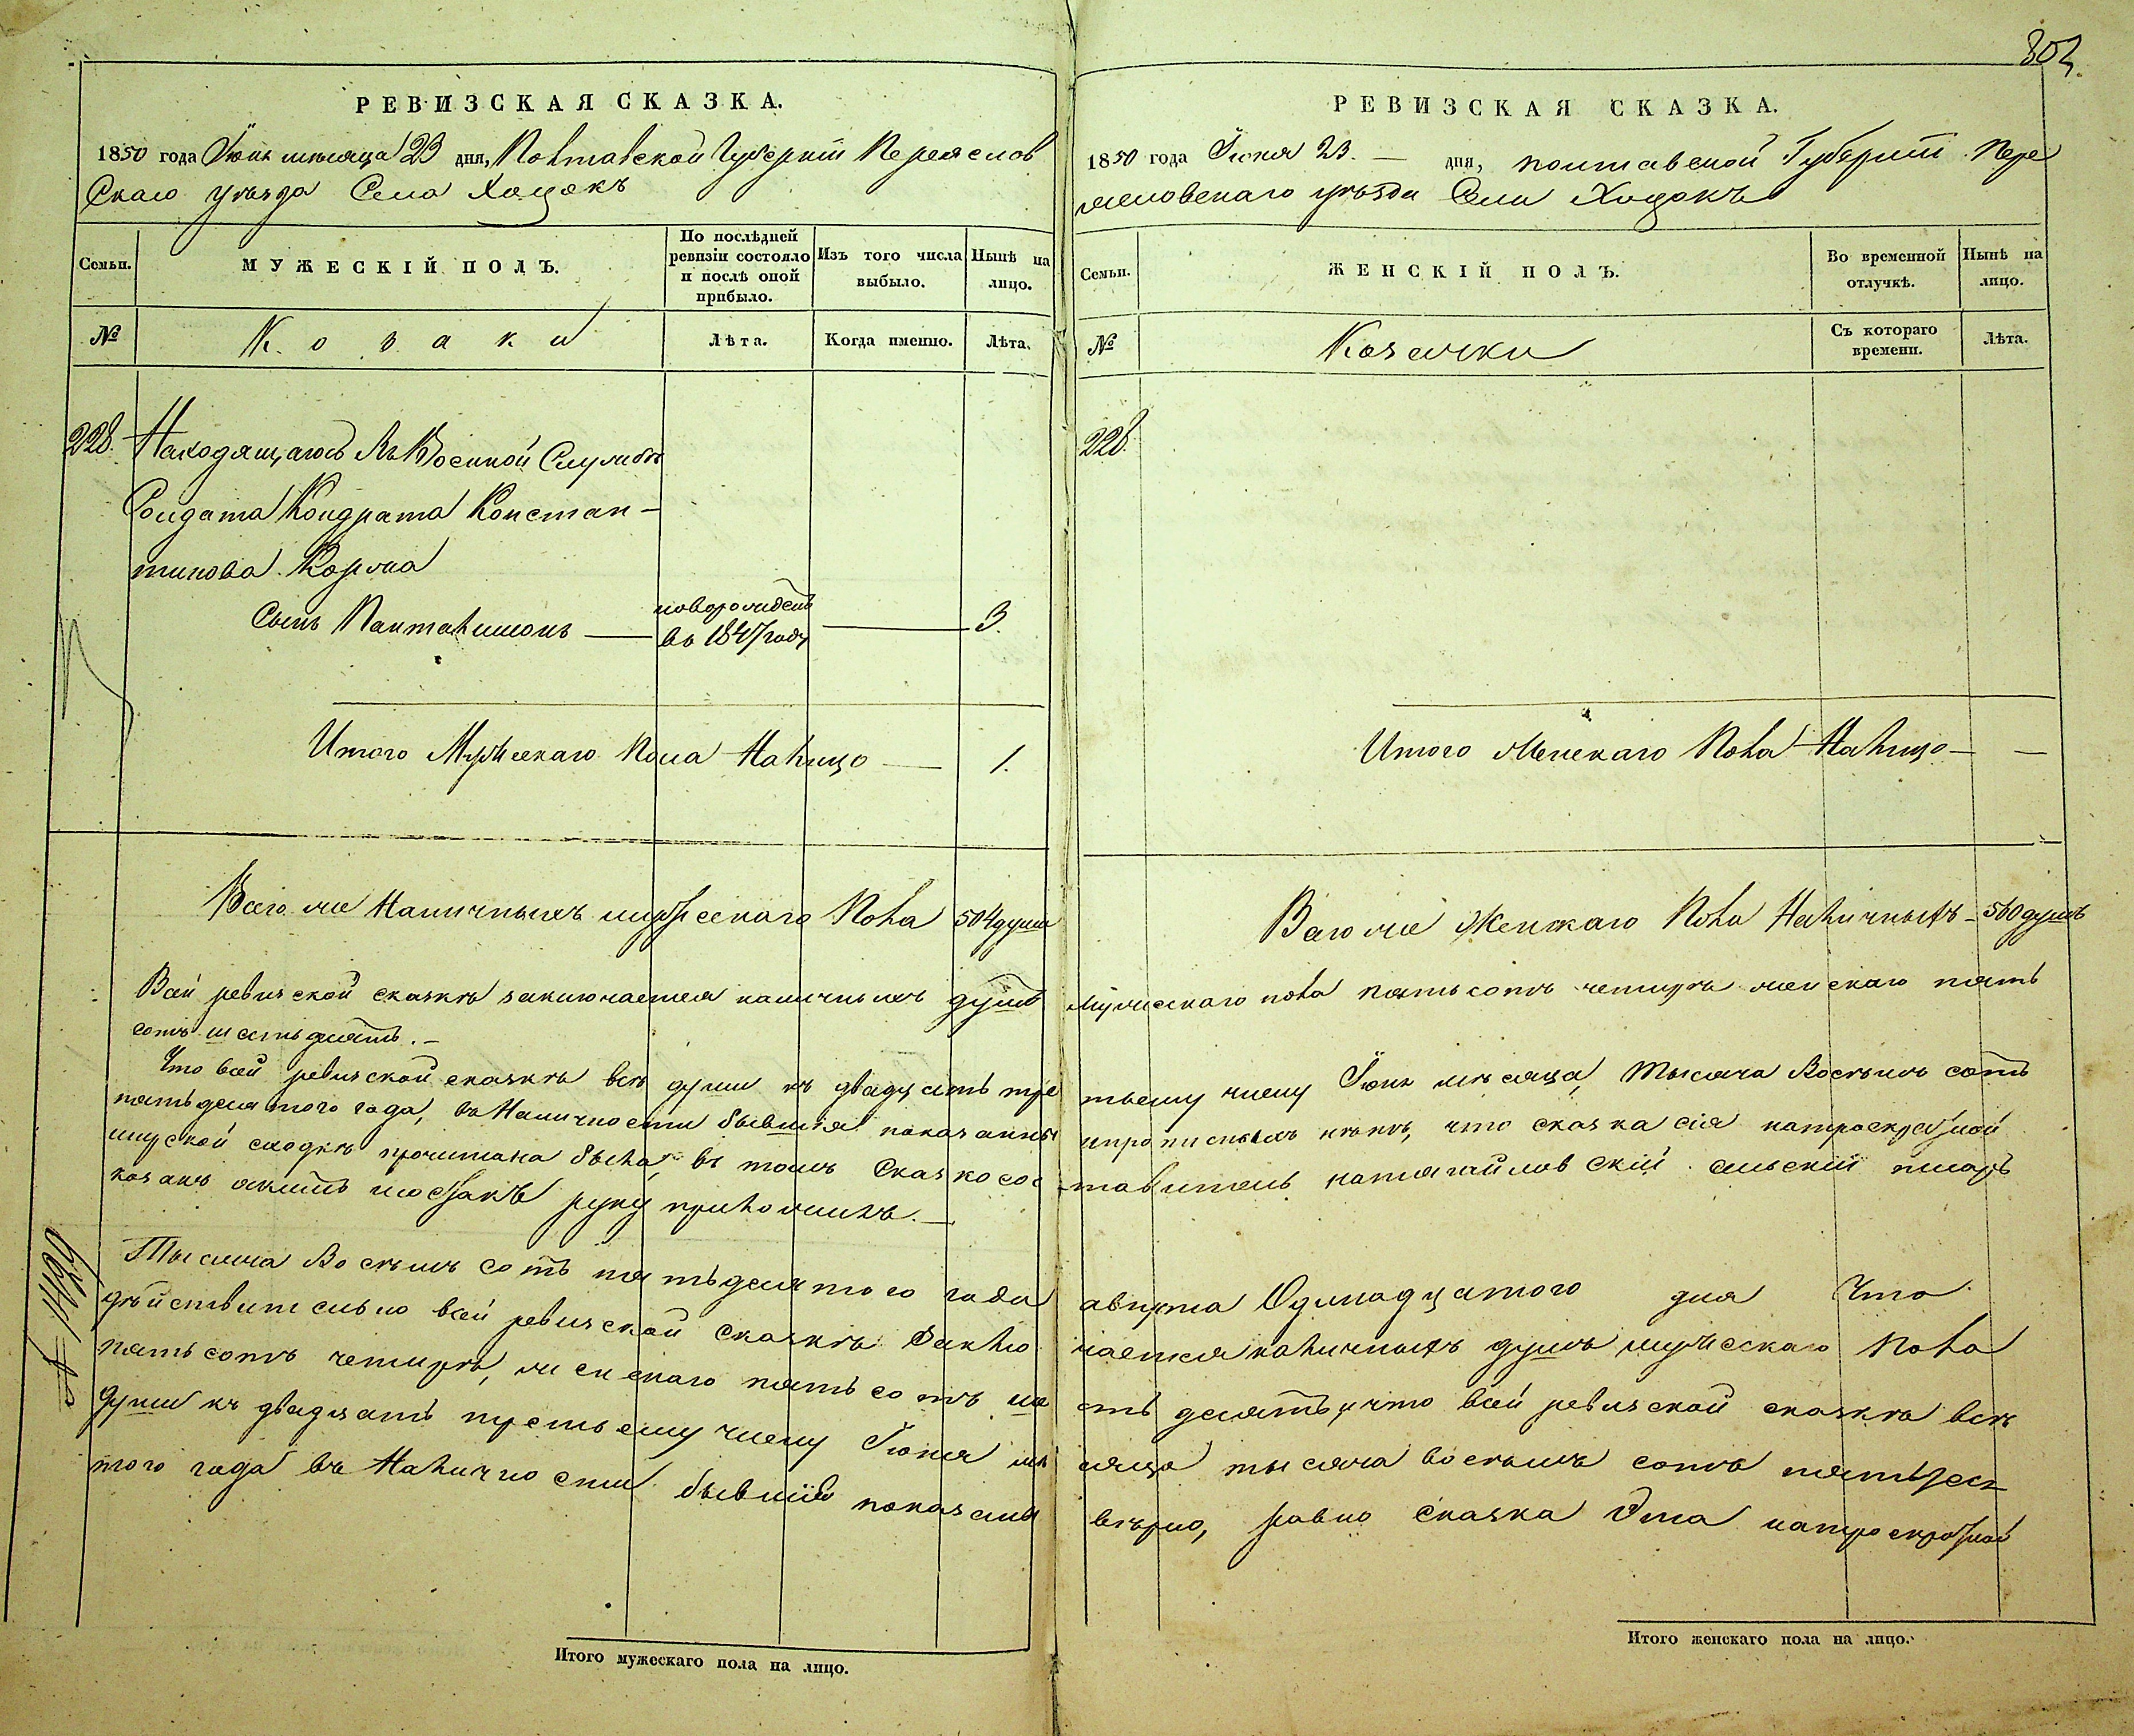 802.
РЕВИЗСКАЯ СКАЗКА.
1850 года Іюня мѣсяца 23 дня, Полтавской Губерніи Переяслов
Скаго уѣзда Села Хоцокъ
Семьи.
МУЖЕСКІЙ ПОЛЪ.
По послѣдней ревизіи состояло и послѣ оной прибыло.
Изъ того числа выбыло.
Нынѣ на лицо.
№
Козаки
Лѣта.
Когда именно.
Лѣта.
228. Находящагось Въ Военной Службѣ
Солдата Кондрата Констан-
тинова
Сынъ Пантелимонъ — новорожденъ въ 1847 году — 3.
Итого Мужескаго Пола На лицо — 1.
Всего же Наличныхъ мужескаго Пола 504 души
РЕВИЗСКАЯ СКАЗКА.
1850 года Іюня 23. — дня, полтавской Губерніи Пере
яасловскаго уѣзда Села Хоцокъ
Семьи.
ЖЕНСКІЙ ПОЛЪ.
Во временной отлучкѣ.
Нынѣ на лицо.
№
Козачки
Съ котораго времени.
Лѣта.
228.
Итого женскаго Пола На лицо — —
Всего же Женскаго Пола Наличныхъ — 560 душъ
Всей ревизской сказкѣ заключается наличныхъ душъ мужескаго пола пятьсотъ четыре женскаго пять
сотъ шестьдесятъ. —
Что всей ревизской сказкѣ всѣ души къ двадцать тре тьему числу Іюня мѣсяца, Тысяча Восемь сотъ
пятьдесятого года, въ Наличности бывшія показаны и прописныхъ нѣтъ, что сказка сія напрослужной
мирской сходкѣ прочитана была, въ томъ Сказкосос тавитель сельскій писарь
козакъ руку приложилъ. —
Тысяча Восемь сотъ пятьдесятого года августа Одинадцатого дня Что
дѣйствительно всей ревизской сказкѣ Заклю чается наличныхъ душъ мужескаго пола
пятьсотъ четыре, женскаго пятьсотъ ше сть десятъ, и что всей ревизской сказкѣ всѣ
души къ двадцать третьему числу Іюня мѣ сяца тысяча восемь сотъ пятьдеся
того года въ Наличности бывшія показаны вѣрно, равно сказка Эта
Итого мужескаго пола на лицо.
Итого женскаго пола на лицо.